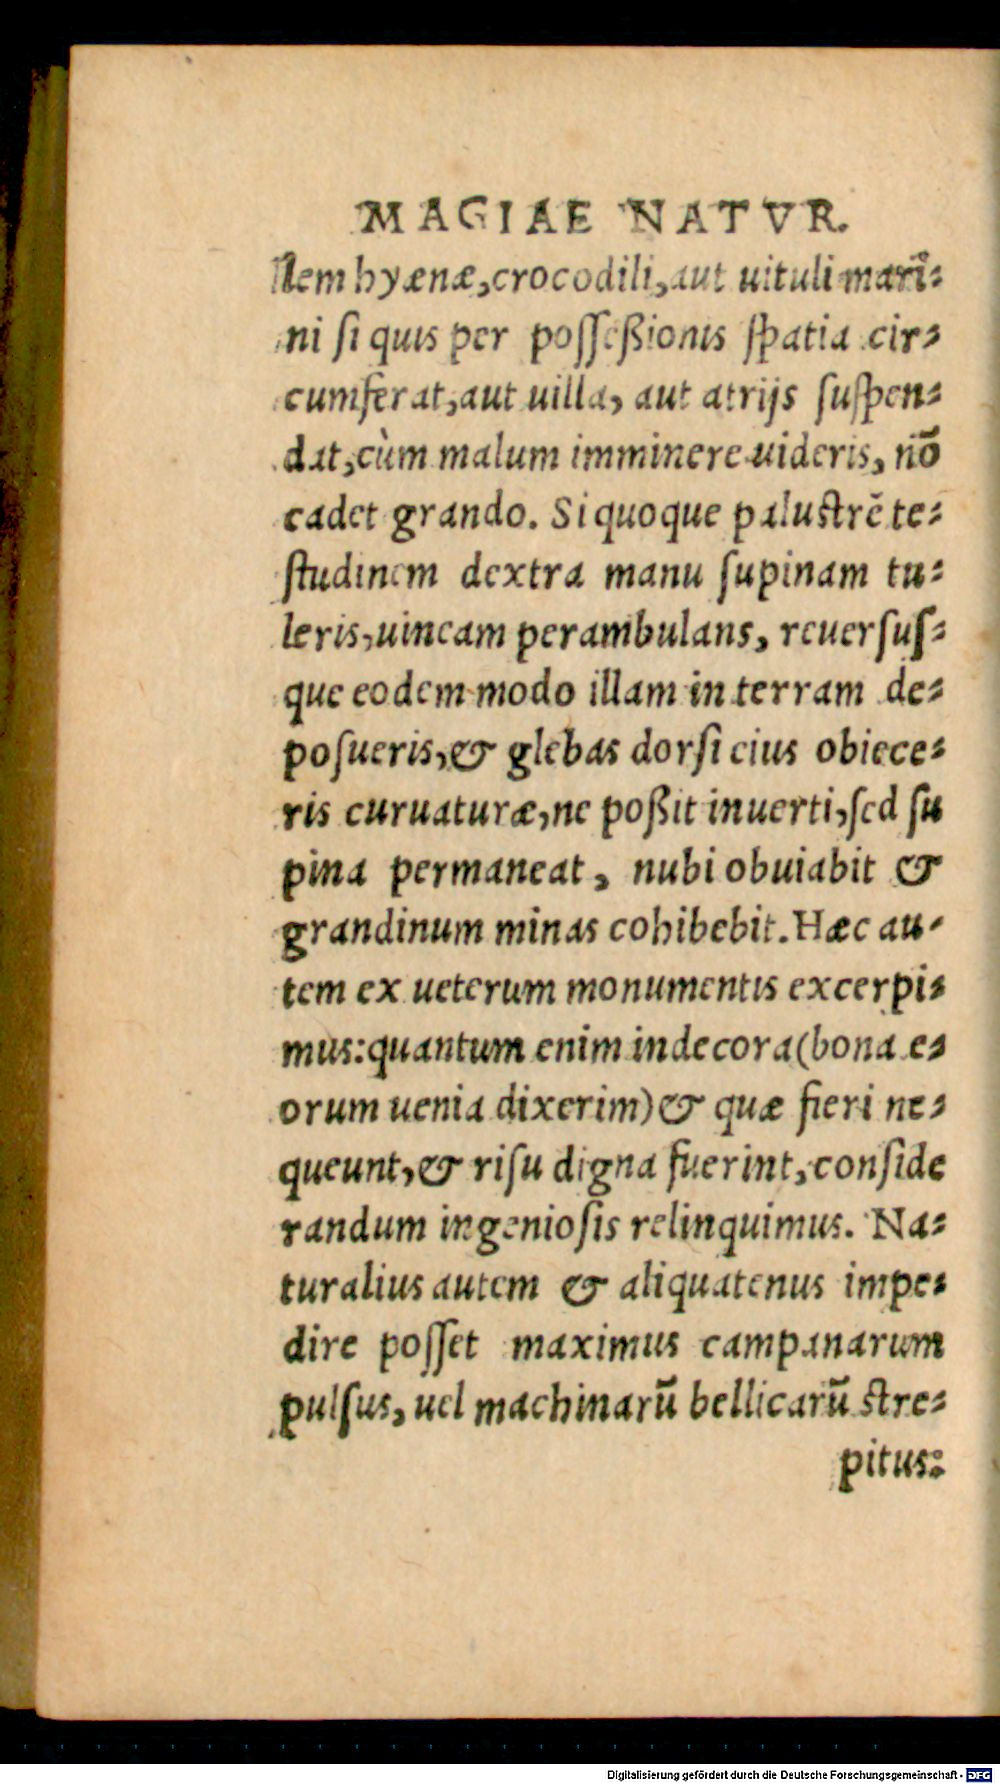 MAGIAE NATVR.
llem hyænæ, crocodili, aut uituli mari⸗
ni ſi quis per poſſeßionis ſpatia cir⸗
cumferat, aut uilla, aut atrijs ſuſpen⸗
dat, cùm malum imminere uideris, nō
cadet grando. Si quoque paluſtrē te⸗
ſtudinem dextra manu ſupinam tu⸗
leris, uineam perambulans, reuerſuſ⸗
que eodem modo illam in terram de⸗
poſueris, & glebas dorſi eius obiece⸗
ris curuaturæ, ne poßit inuerti, ſed ſu
pina permaneat, nubi obuiabit &
grandinum minas cohibebit. Hæc au⸗
tem ex ueterum monumentis excerpi⸗
mus: quantum enim indecora (bona e⸗
orum uenia dixerim) & quæ fieri ne⸗
queunt, & riſu digna fuerint, conſide
randum ingenioſis relinquimus. Na⸗
turalius autem & aliquatenus impe⸗
dire poſſet maximus campanarum
pulſus, uel machinarū bellicarū ſtre⸗
pitus:
Digitalisierung gefördert durch die Deutsche Forschungsgemeinschaft - DFG